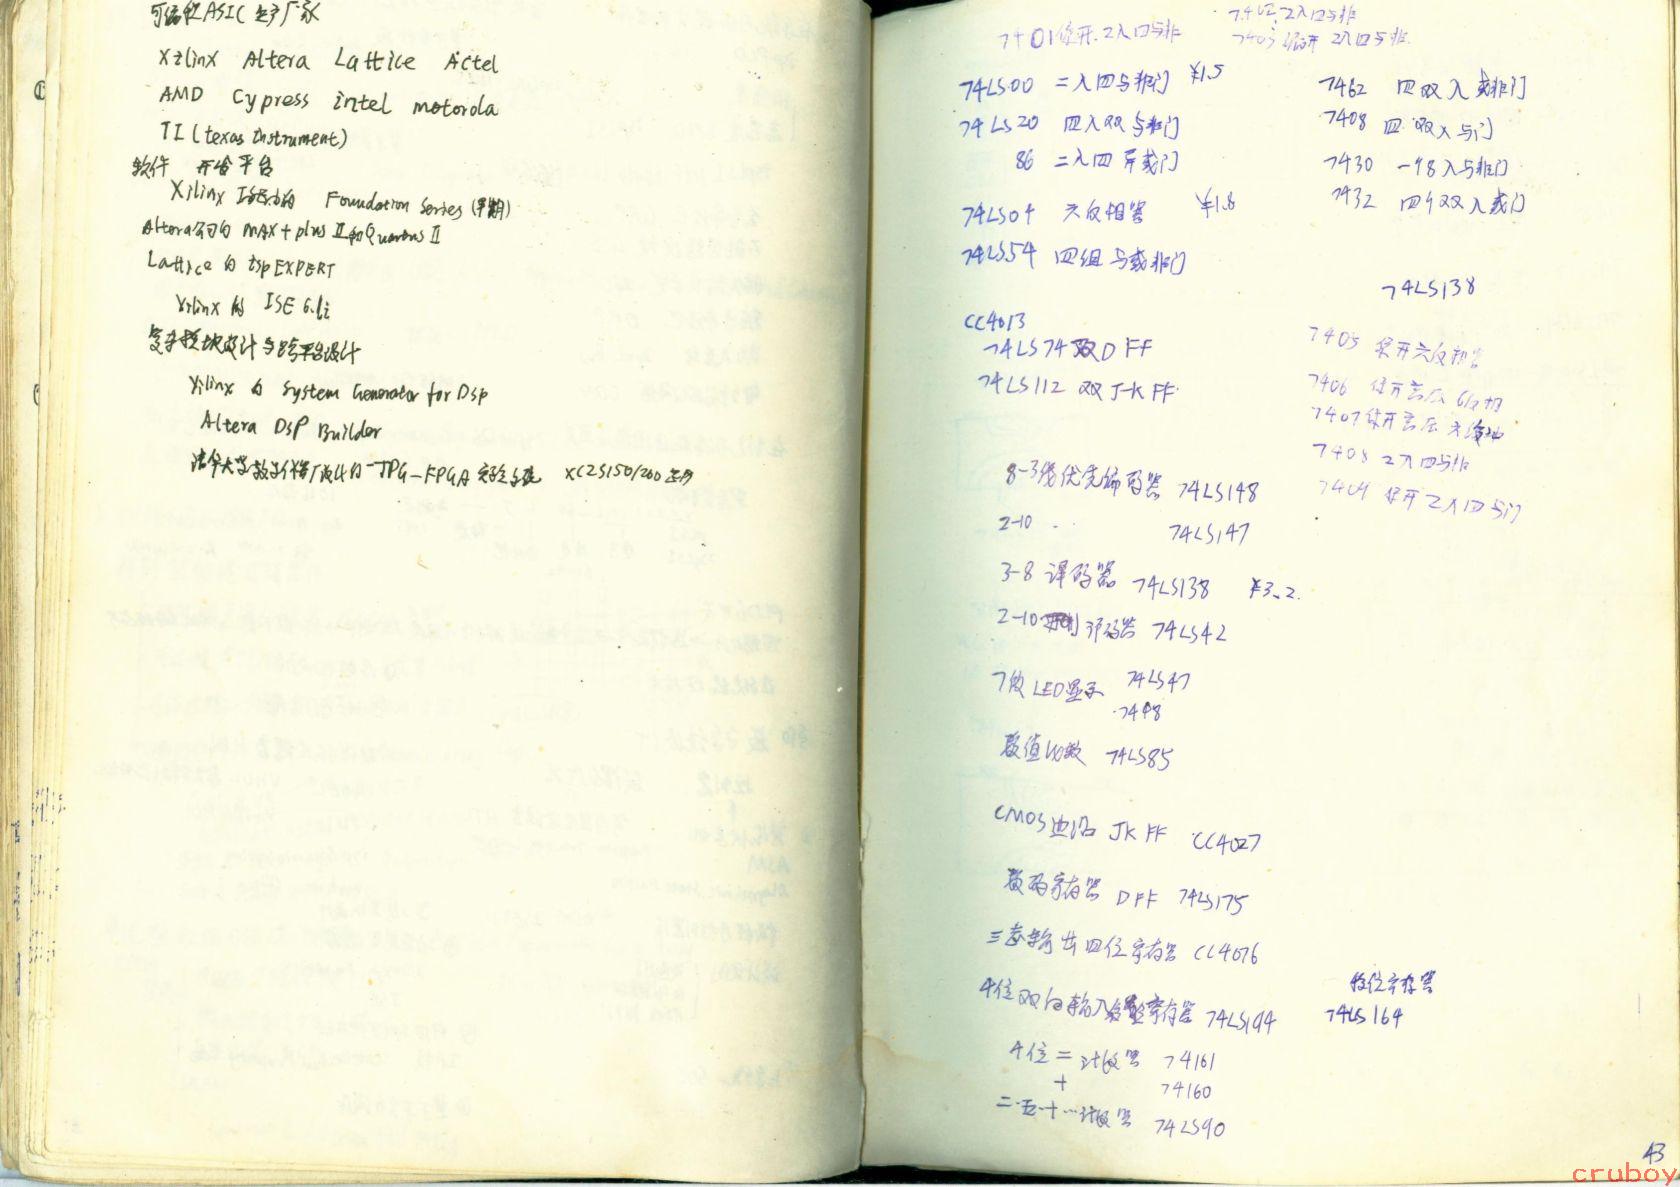 可编程ASIC 生产厂家
Xilinx Altera Lattice Actel
AMD Cypress intel motorola
TI (texas Instrument)
软件 开发平台
Xilinx Foundation Series (早期)
Altera公司的 MAX+plus II和Quartus II
Lattice 的 ispEXPERT
Xilinx 的 ISE 6.1i
复杂模块设计与跨平台设计
Xilinx 的 System Generator for Dsp
Altera DSP Builder
清华大学 XC2S150/200
7402 2入四与非
7401 集开 2入四与非
7403 集开 2入四与非
74LS00 二入四与非门 ¥1.5
7462 四双入或非门
74LS20 四入双与非门
7408 四双入与门
86 二入四异或门
7430 一个8入与非门
74LS04 六反相器 ¥1.8
7432 四个双入或门
74LS54 四组与或非门
74LS138
CC4013
74LS74 双D FF
7405 集开六反相器
74LS112 双J-K FF
7406 集开高压
7407 集开高压
2入四与非
8-3线优先编码器 74LS148
7409 集开 2入四与门
2-10 74LS147
3-8 译码器 74LS138 ¥3.2
2-10 译码器 74LS42
7段LED显示 74LS47
7448
数值比较 74LS85
CMOS边沿 JK FF CC4027
数码寄存器 DFF 74LS175
三态输出四位寄存器 CC4076
移位寄存器
4位双向 74LS194
74LS164
4位二 计数器 74161
十 74160
二·五·十…计数器 74LS90
43
cruboy